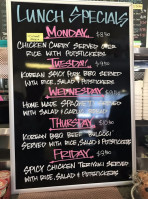 LUNCH SPECIALS
MONDAY $8.50
CHICKEN CURRY SERVED OVER
RICE WITH POTSTICKERS
TUESDAY $9.50
KOREAN SPICY PORK BBQ SERVED
WITH RICE, SALAD & POTSTICKERS
WEDNESDAY
HOME MADE SPAGHETTI
SALAD &
THURSDAY
KOREAN BBQ BEEF "BULGOGI"
SERVED WITH RICE, SALAD & POTSTICKERS
FRIDAY
SPICY CHICKEN TERIYAKI SERVED
WITH RICE, SALAD & POTSTICKERS